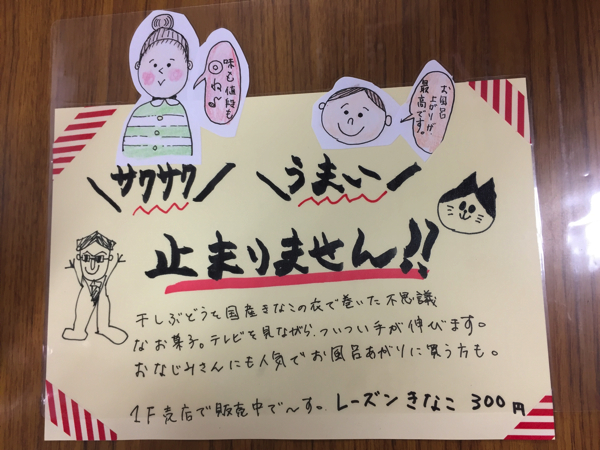 味も値段も
◎ね♪
お風呂
上がりが、
最高です。
\サクサク/ \うまい/
止まりません!!
干しぶどうを国産きなこの衣で巻いた不思議
なお菓子。テレビを見ながら、ついつい手が伸びます。
おなじみさんにも人気でお風呂あがりに買う方も。
1F売店で販売中で〜す。レーズンきなこ 300円